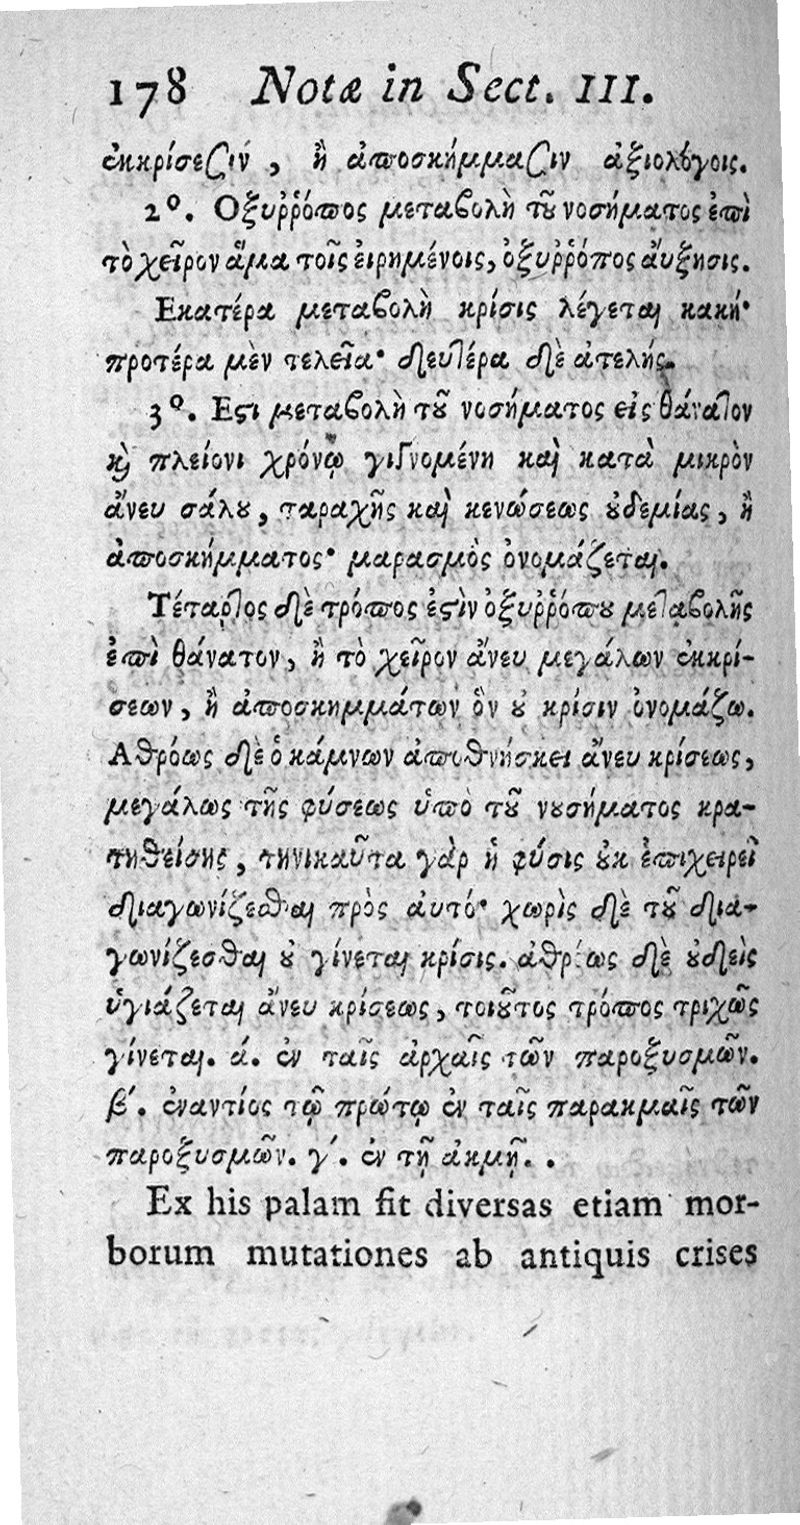 178 Notæ in Sect. III.
ἐκκρίσεσιν, ἢ ἀποσκήμμασιν ἀξιολόγοις.
2º. Οξυῤῥόπος μεταβολὴ τοῦ νοσήματος ἐπὶ
τὸ χεῖρον ἅμα τοῖς ἐιρημένοις, ὀξυῤῥόπος ἄυξησις.
Εκατέρα μεταβολὴ κρίσις λέγεται κακή·
προτέρα μὲν τελεῖα· δευτέρα δὲ ἀτελής.
3º. Εστι μεταβολὴ τοῦ νοσήματος εἰς θάνατον
καὶ πλείονι χρόνῳ γιγνομένη καὶ κατὰ μικρὸν
ἄνευ σάλου, ταραχῆς καὶ κενώσεως οὐδεμίας, ἢ
ἀποσκήμματος· μαρασμὸς ὀνομάζεται.
Τέταρτος δὲ τρόπος ἐστὶν ὀξυῤῥόπου μεταβολῆς
ἐπὶ θάνατον, ἢ τὸ χεῖρον ἄνευ μεγάλων ἐκκρί-
σεων, ἢ ἀποσκημμάτων ὃν οὐ κρίσιν ὀνομάζω.
Αθρόως δὲ ὁ κάμνων ἀποθνήσκει ἄνευ κρίσεως,
μεγάλως τῆς φύσεως ὑπὸ τοῦ νουσήματος κρα-
τηθείσης, τηνικαῦτα γὰρ ἡ φύσις οὐκ ἐπιχειρεῖ
διαγωνίζεσθαι πρὸς ἀυτό· χωρὶς δὲ τοῦ δια-
γωνίζεσθαι οὐ γίνεται κρίσις. ἀθρόως δὲ οὐδεὶς
ὑγιάζεται ἄνευ κρίσεως, τοιοῦτος τρόπος τριχῶς
γίνεται. ά. ἐν ταῖς ἀρχαῖς τῶν παροξυσμῶν.
β´. ἐναντίος τῷ πρώτῳ ἐν ταῖς παρακμαῖς τῶν
παροξυσμῶν. γ´. ἐν τῇ ἀκμῇ. .
Ex his palam fit diversas etiam mor-
borum mutationes ab antiquis crises